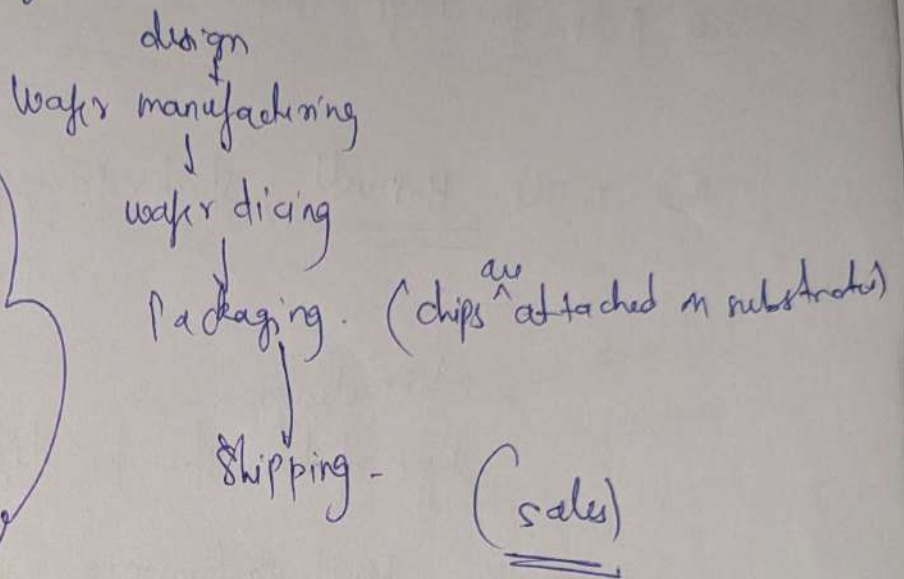 design
↓
Wafer manufacturing
↓
wafer dicing
↓
Packaging. (chips are attached on substrates)
↓
Shipping - (sales)